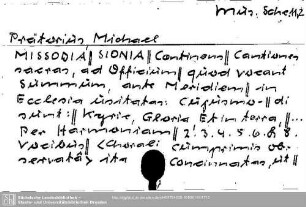 Mus. Sche 112
Prätorius, Michael
MISSODIA ‖ SIONIA ‖ Continens ‖ Cantiones
sacras, ad Officium ‖ quod vocant
Summum, ante Meridiem ‖ in
Ecclesia usitatas: Cujusmo-‖ di
sunt: ‖ Kyrie, Gloria Et in terra, ‖ ...
Per Harmoniam ‖ 2. 3. 4. 5. 6. 8.
Vocibus ‖ Chorali cumprimis ob-
servatâ, ita concinnatas, ut ‖